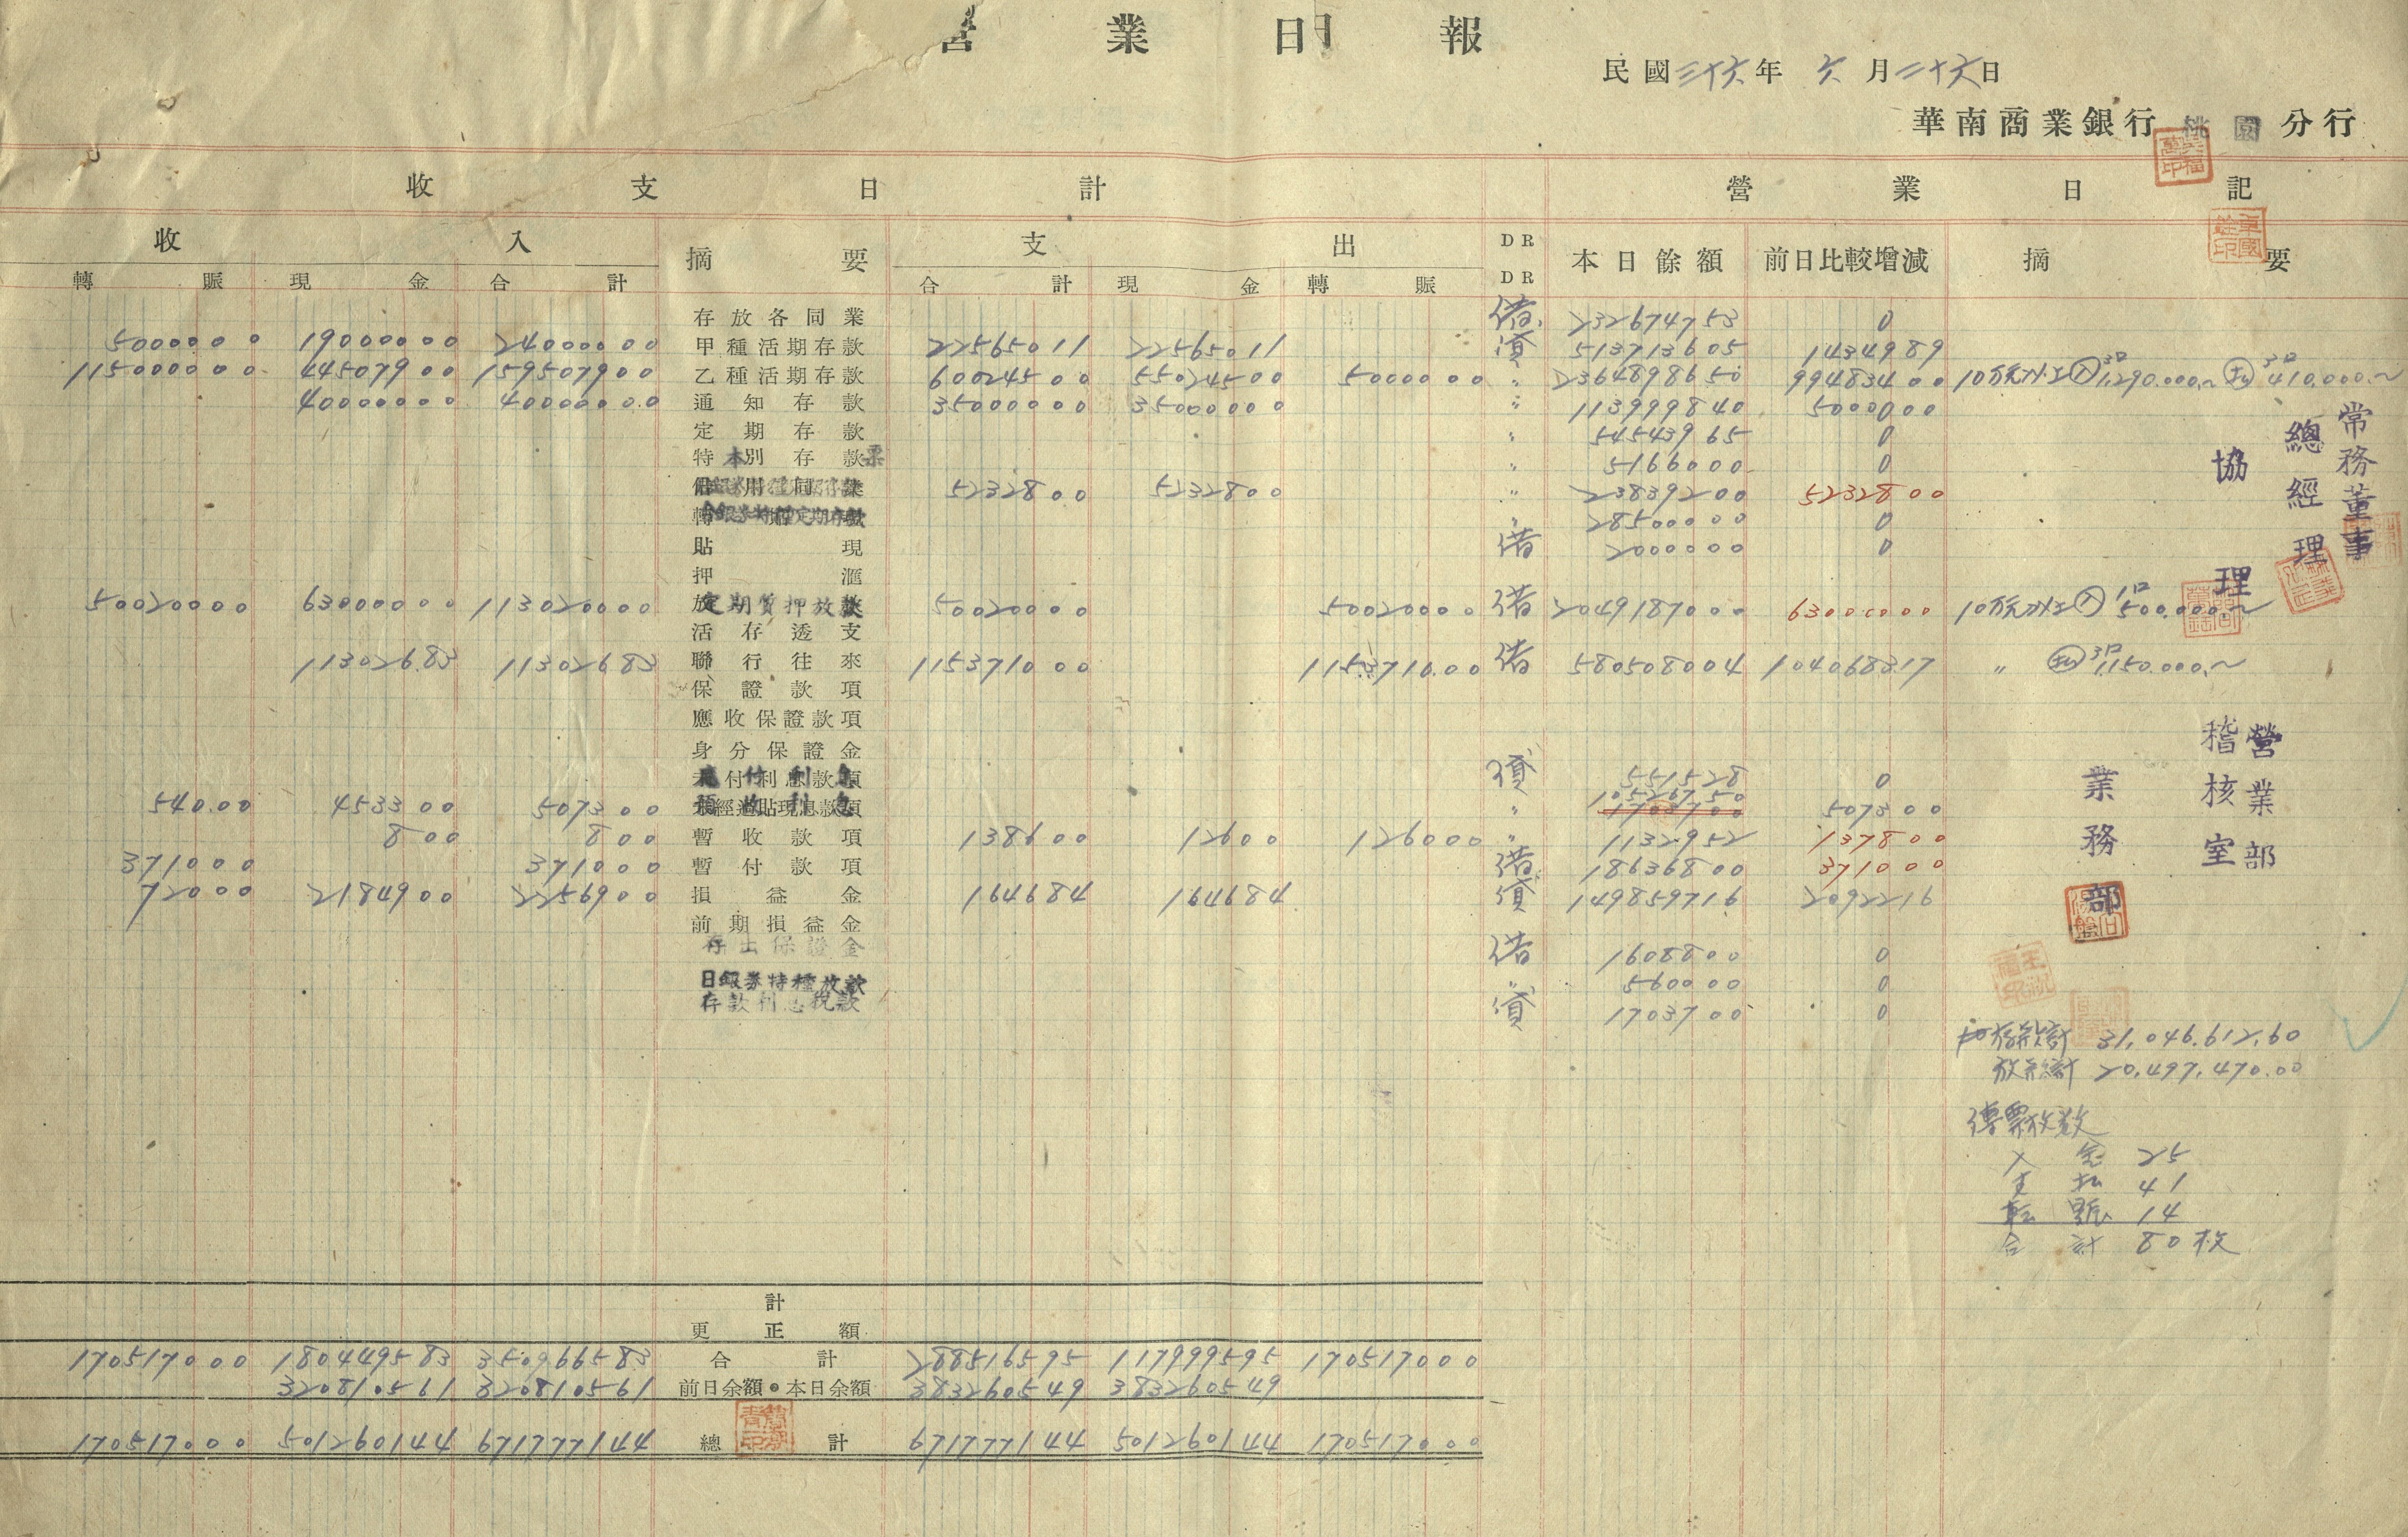 營業日報
民國三十六年 六月二十六日
華南商業銀行 桃園 分行
收支日計 營業日記
收入 摘要 支出 DR DR 本日餘額 前日比較增減 摘要
轉賬 現金 合計 合計 現金 轉賬
存放各同業 借 232674753 0
5000000 19000000 24000000 甲種活期存款 22565011 22565011 貸 513713605 1434989
115000000 44507900 159507900 乙種活期存款 60024500 55024500 5000000 〃 2364898650 99483400 10万元以上 入 3口 1,290.000.~ 払 3口 410.000.~
40000000 40000000 通知存款 35000000 35000000 〃 113999840 5000000
定期存款 〃 54543965 0
特別存款 本票 〃 5166000 0
5232800 5232800 〃 23839200 5232800
〃 28500000 0
貼現 借 2000000 0
押滙
50020000 63000000 113020000 定期質押放款 50020000 50020000 借 2049187000 63000000 10万元以上 入 1口 500.000.~
活存透支
11302683 11302683 聯行往來 115371000 115371000 借 580508004 104068317 〃 払 3口 1,150.000.~
保證款項
應收保證款項
身分保證金
應付利息 貸 551528 0
54000 453300 507300 預收利息 〃 10526750 507300
800 800 暫收款項 138600 12600 126000 〃 1132952 137800
371000 371000 暫付款項 借 18636800 371000
72000 2184900 2256900 損益金 164684 164684 貸 149859716 2092216
前期損益金
存出保證金 借 1608800 0
日銀券特種放款 〃 5600000 0
存款利息稅款 貸 1703700 0
存款總計 31,046,612.60
放款總計 20,497,470.00
傳票枚数
入金 25
支払 41
転賬 14
合計 80枚
計
更正額
170517000 180449583 350966583 合計 288516595 117999595 170517000
320810561 320810561 前日余額・本日余額 383260549 383260549
170517000 501260144 671777144 總計 671777144 501260144 170517000
常務董事
總經理
協理
營業部
稽核室
業務部